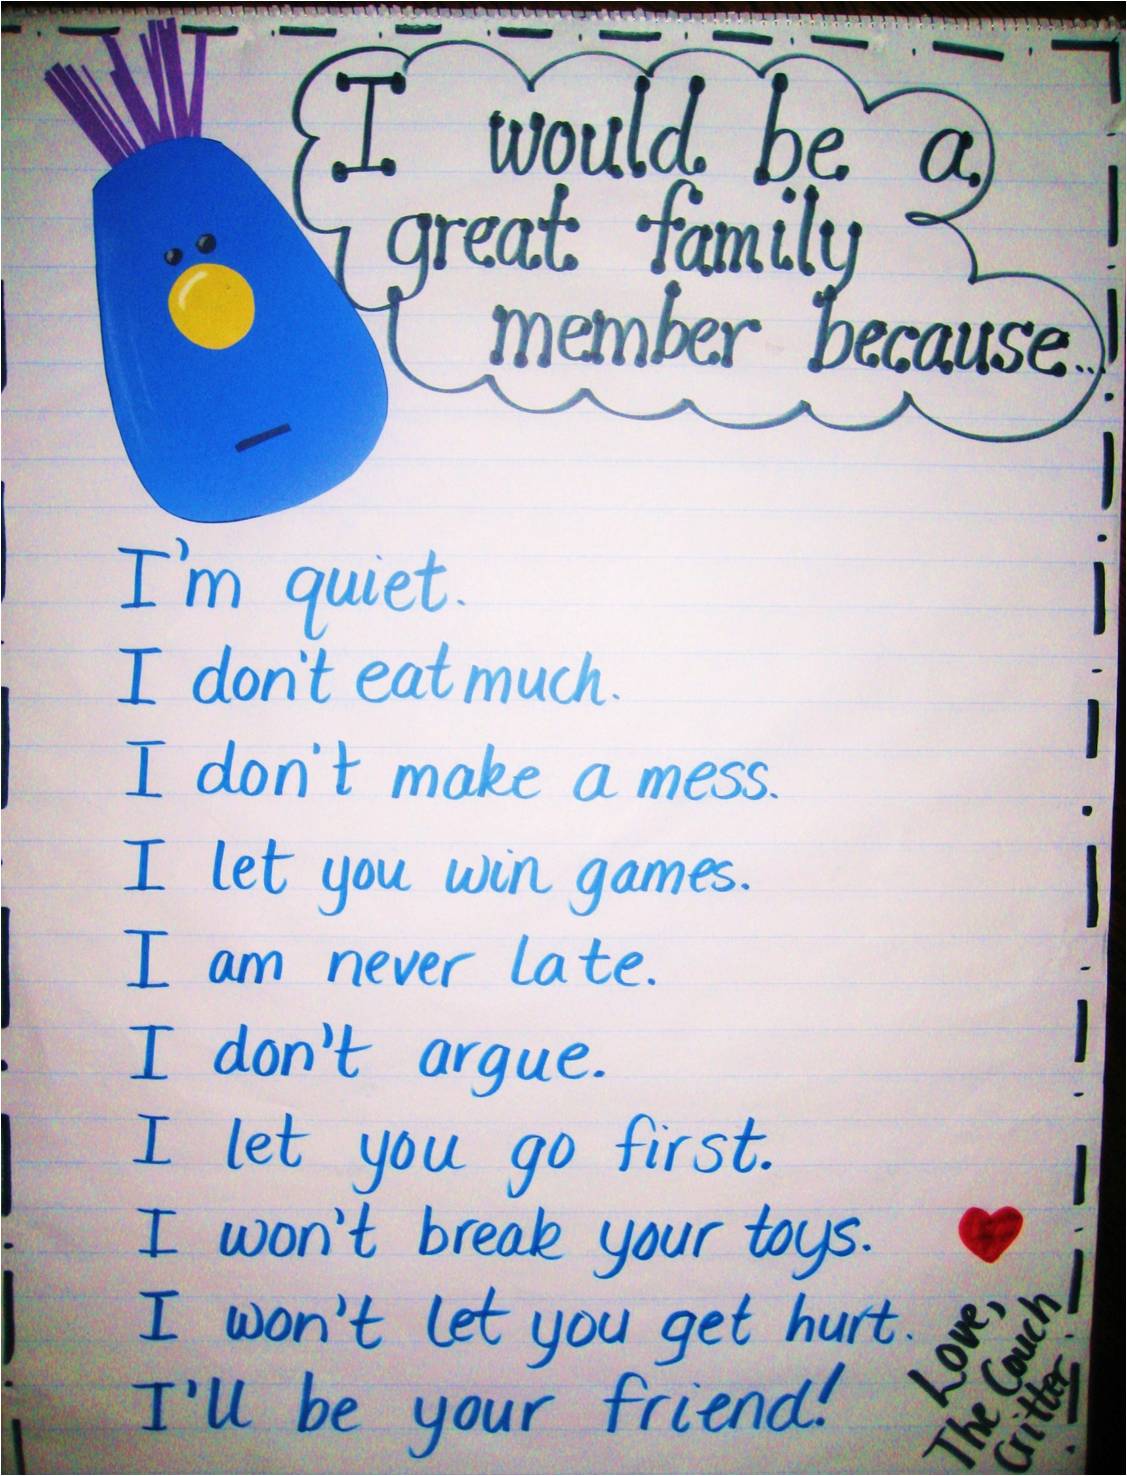 I would be a
great family
member because...
I'm quiet.
I don't eat much.
I don't make a mess.
I let you win games.
I am never late.
I don't argue.
I let you go first.
I won't break your toys.
I won't let you get hurt.
I'll be your friend!
Love,
The Couch
Critter